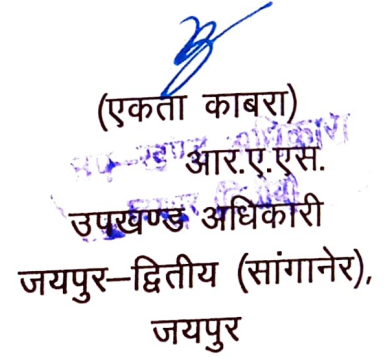 (एकता काबरा)
आर.ए.एस.
उपखण्ड अधिकारी
जयपुर–द्वितीय (सांगानेर),
जयपुर